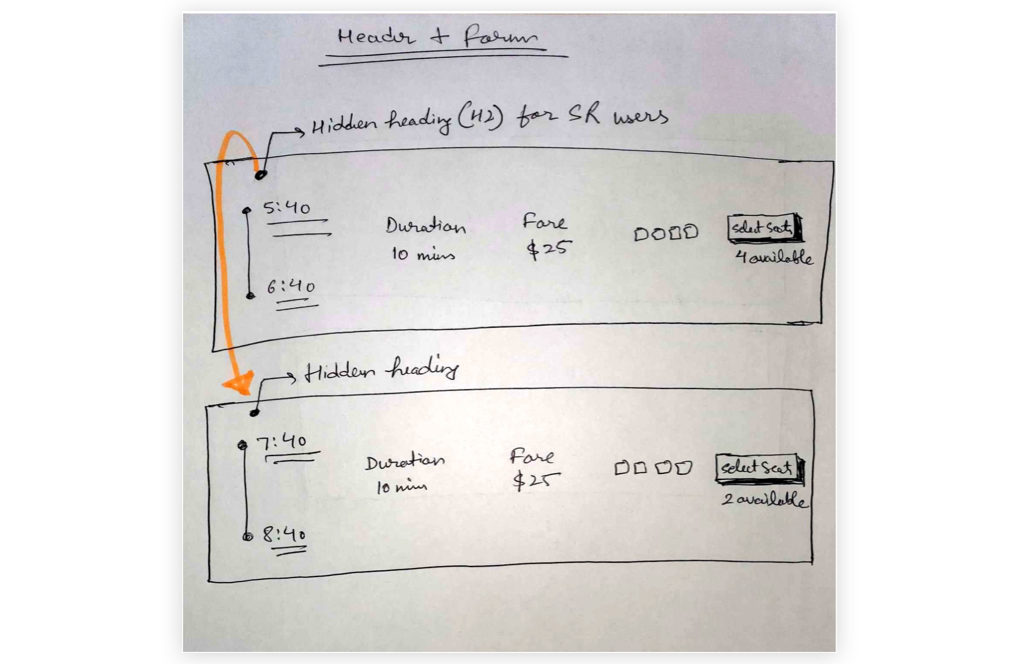 Header + Forum
Hidden heading (H2) for SR users
5:40
Duration
10 mins
Fare
$25
select Seat
4 available
6:40
Hidden heading
7:40
Duration
10 min
Fare
$25
select Seat
2 available
8:40